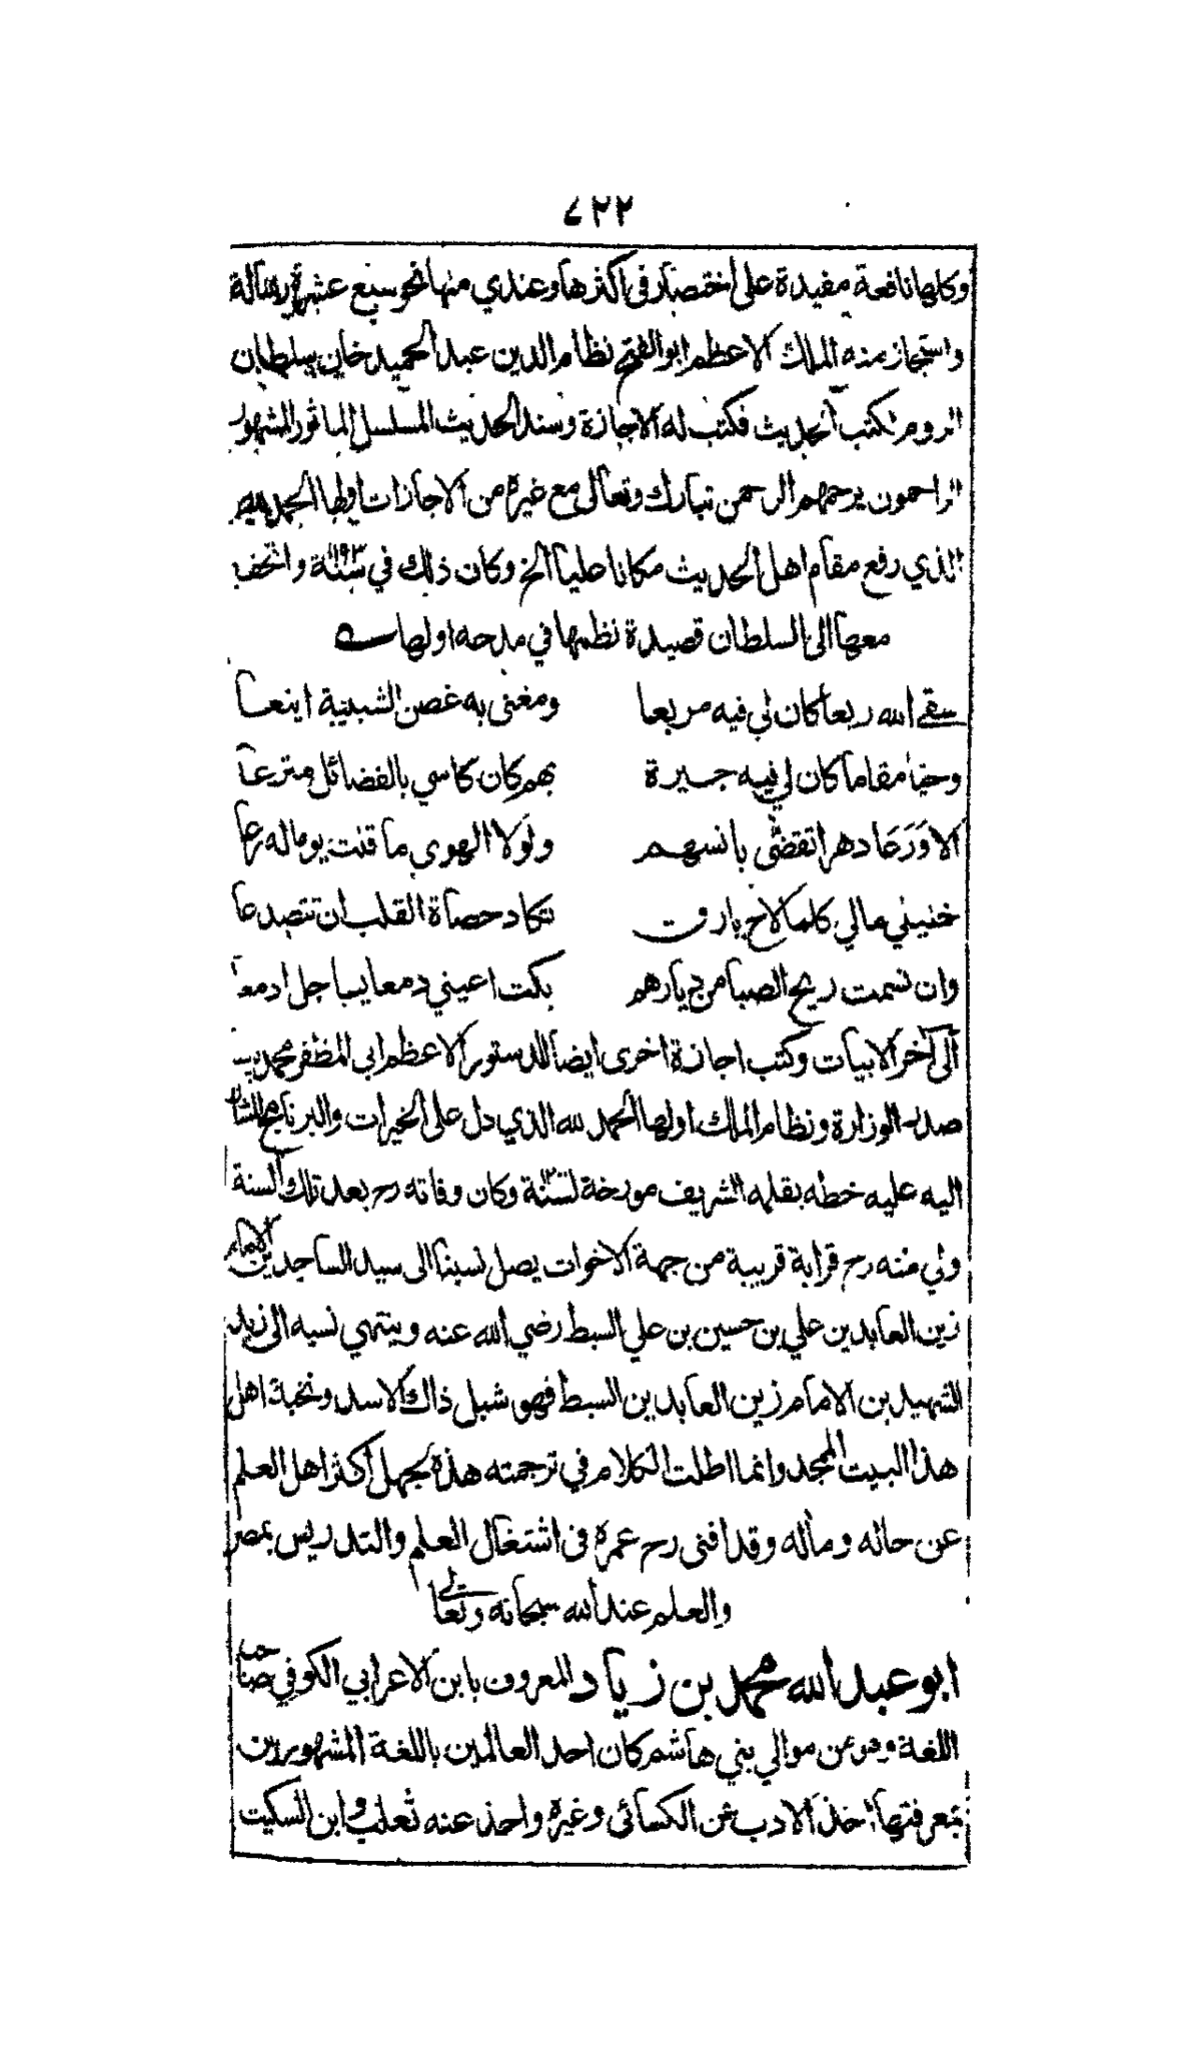 ٧٢٢
وكلها نافعة مفيدة على اختصار في اكثرها وعندي منها نحو سبع عشرة رسالة
واستجاز منه الملك الاعظم ابو الفتح نظام الدين عبد الحميد خان سلطان
الروم لكتب الحديث فكتب له الاجازة وسند الحديث المسلسل الماثور المشهور
الراحمون يرحمهم الرحمن تبارك وتعالى مع غيره من الاجازات اولها الحمد لله
الذي رفع مقام اهل الحديث مكانا عليا الخ وكان ذلك في سنة ١١٩٣ واتحف
معها الى السلطان قصيدة نظمها في مدحه اولها
سقى الله ربعا كان لي فيه مربعا ومغنى به غصن الشبيبة اينعا
وحيا مقاما كان لي فيه جيرة بهم كان كاسي بالفضائل مترعا
الا ورعا دهرا تقضى بانسهم ولولا الهوى ما قلت يوما له رعا
خليلي مالي كلما لاح بارق تكاد حصاة القلب ان تتصدعا
وان نسمت ريح الصبا من ديارهم بكت اعيني دمعا يساجل ادمعا
الى آخر الابيات وكتب اجازة اخرى ايضا للدستور الاعظم ابي المظفر محمد
صدر الوزارة ونظام الملك اولها الحمد لله الذي دل على الخيرات والبرنامج المشار
اليه عليه خطه بقلمه الشريف مورخة لسنة وكان وفاته رح بعد تلك السنة
ولي منه رح قرابة قريبة من جهة الاخوات يصل نسبنا الى سيد الساجدين الامام
زين العابدين علي بن حسين بن علي السبط رضي الله عنه وينتمي نسبه الى زيد
الشهيد بن الامام زين العابدين السبط فهو شبل ذاك الاسد ونخبة اهل
هذا البيت الممجد وانما اطلت الكلام في ترجمته هذه لجهل اكثر اهل العلم
عن حاله ومآله وقد افنى رح عمره في اشتغال العلم والتدريس بمصر
والعلم عند الله سبحانه وتعالى
ابو عبد الله محمد بن زياد المعروف بابن الاعرابي الكوفي صاحب
اللغة وهو من موالي بني هاشم كان احد العالمين باللغة المشهورين
بمعرفتها اخذ الادب عن الكسائي وغيره واخذ عنه ثعلب وابن السكيت